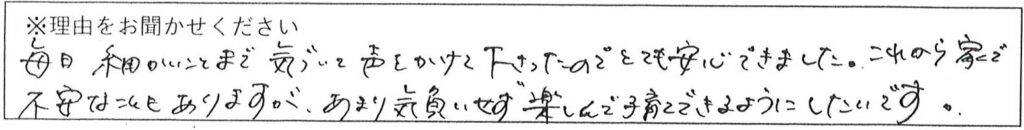 ※理由をお聞かせください
毎日 細かいことまで 気づいて 声をかけて下さったのでとても安心できました。これから家で
不安なこともありますが、あまり気負いせず 楽しんで子育てできるようにしたいです。